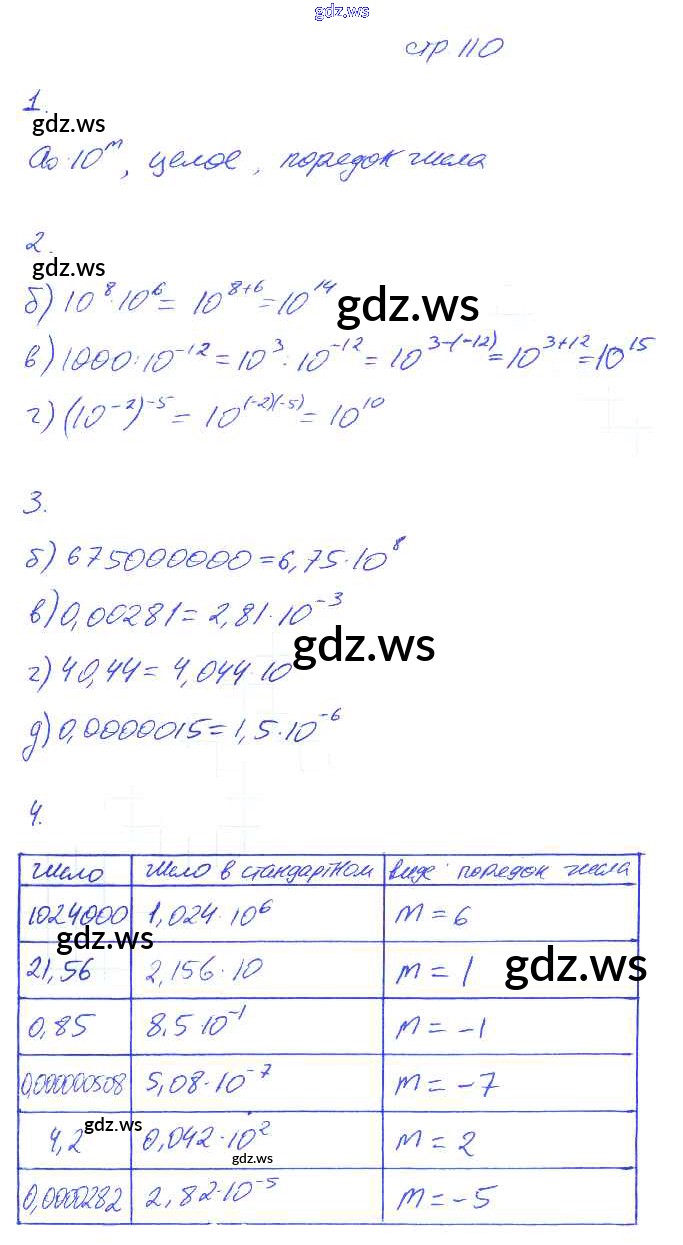 gdz.ws
стр 110
1.
gdz.ws
a₀·10ᵐ, целое, поредок числа
2.
gdz.ws
б) 10⁸·10⁶ = 10⁸⁺⁶ = 10¹⁴
gdz.ws
в) 1000:10⁻¹² = 10³:10⁻¹² = 10³⁻⁽⁻¹²⁾ = 10³⁺¹² = 10¹⁵
г) (10⁻²)⁻⁵ = 10⁽⁻²⁾⁽⁻⁵⁾ = 10¹⁰
3.
б) 675000000 = 6,75·10⁸
в) 0,00281 = 2,81·10⁻³
gdz.ws
г) 40,44 = 4,044·10
д) 0,0000015 = 1,5·10⁻⁶
4.
число число в стандартном виде поредок числа
1024000 1,024·10⁶ m = 6
gdz.ws
21,56 2,156·10 m = 1
gdz.ws
0,85 8,5·10⁻¹ m = -1
0,000000508 5,08·10⁻⁷ m = -7
4,2 0,042·10² m = 2
gdz.ws
gdz.ws
0,0000282 2,82·10⁻⁵ m = -5